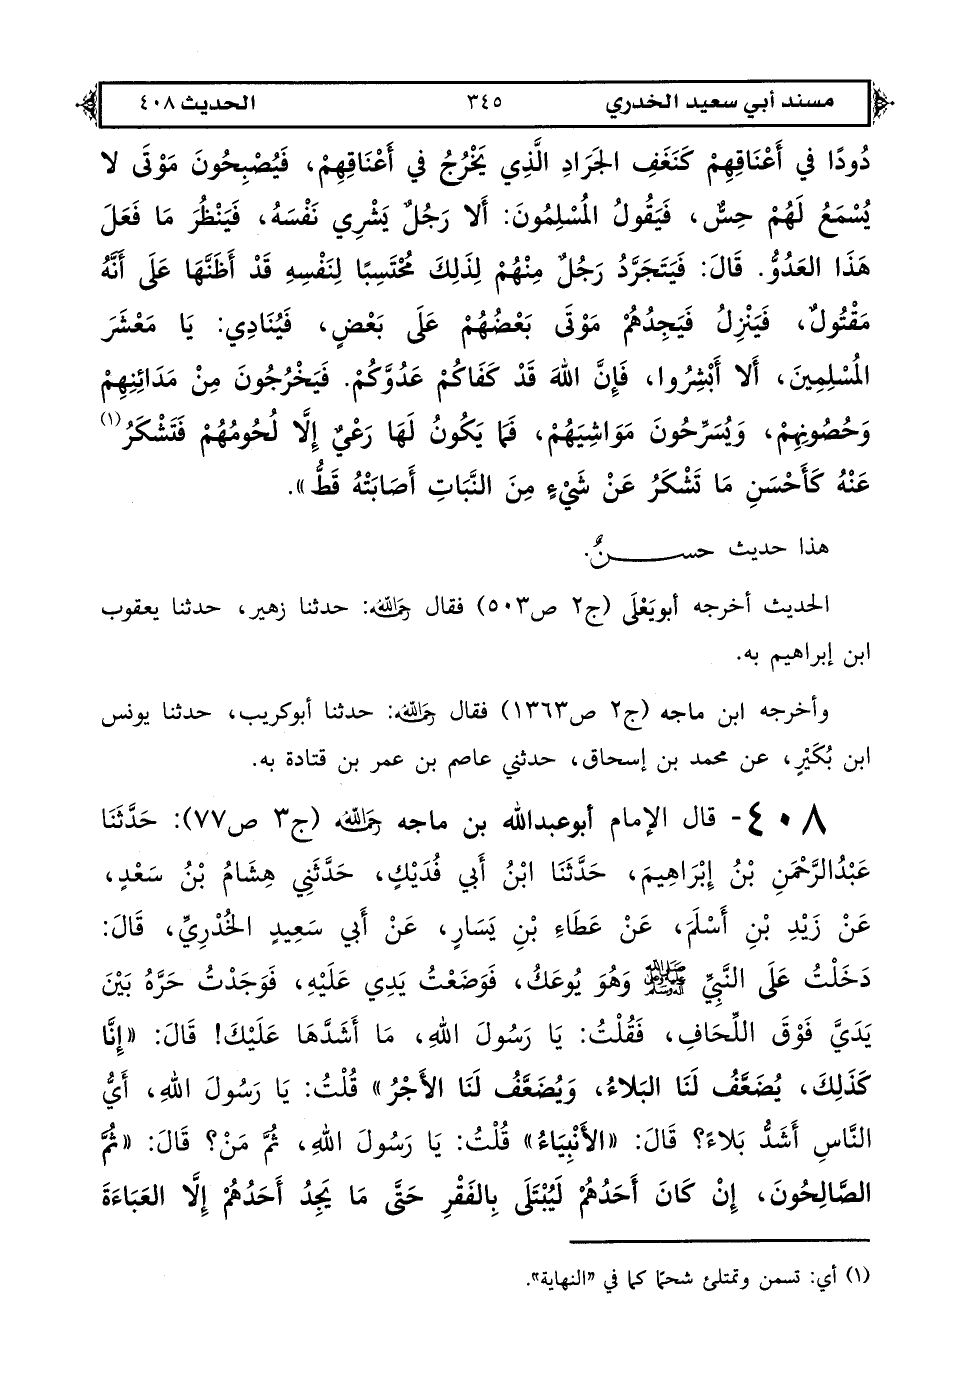 مسند أبي سعيد الخدري ٣٤٥ الحديث ٤٠٨
دُودًا في أَعْنَاقِهِمْ كَنَغَفِ الجَرَادِ الَّذِي يَخْرُجُ في أَعْنَاقِهِمْ، فَيُصْبِحُونَ مَوْتَى لا
يُسْمَعُ لَهُمْ حِسٌّ، فَيَقُولُ المُسْلِمُونَ: أَلا رَجُلٌ يَشْرِي نَفْسَهُ، فَيَنْظُرَ مَا فَعَلَ
هَذَا العَدُوُّ. قَالَ: فَيَتَجَرَّدُ رَجُلٌ مِنْهُمْ لِذَلِكَ مُحْتَسِبًا لِنَفْسِهِ قَدْ أَظَنَّهَا عَلَى أَنَّهُ
مَقْتُولٌ، فَيَنْزِلُ فَيَجِدُهُمْ مَوْتَى بَعْضُهُمْ عَلَى بَعْضٍ، فَيُنَادِي: يَا مَعْشَرَ
المُسْلِمِينَ، أَلا أَبْشِرُوا، فَإِنَّ اللهَ قَدْ كَفَاكُمْ عَدُوَّكُمْ. فَيَخْرُجُونَ مِنْ مَدَائِنِهِمْ
وَحُصُونِهِمْ، وَيُسَرِّحُونَ مَوَاشِيَهُمْ، فَمَا يَكُونُ لَهَا رَعْيٌ إِلَّا لُحُومُهُمْ فَتَشْكَرُ(١)
عَنْهُ كَأَحْسَنِ مَا تَشْكَرُ عَنْ شَيْءٍ مِنَ النَّبَاتِ أَصَابَتْهُ قَطُّ».
هذا حديث حســـــنٌ.
الحديث أخرجه أبويَعْلَى (ج٢ ص٥٠٣) فقال رحمه الله: حدثنا زهير، حدثنا يعقوب
ابن إبراهيم به.
وأخرجه ابن ماجه (ج٢ ص١٣٦٣) فقال رحمه الله: حدثنا أبوكريب، حدثنا يونس
ابن بُكَيْرٍ، عن محمد بن إسحاق، حدثني عاصم بن عمر بن قتادة به.
٤٠٨- قال الإمام أبوعبدالله بن ماجه رحمه الله (ج٣ ص٧٧): حَدَّثَنَا
عَبْدُالرَّحْمَنِ بْنُ إِبْرَاهِيمَ، حَدَّثَنَا ابْنُ أَبي فُدَيْكٍ، حَدَّثَنِي هِشَامُ بْنُ سَعْدٍ،
عَنْ زَيْدِ بْنِ أَسْلَمَ، عَنْ عَطَاءِ بْنِ يَسَارٍ، عَنْ أَبي سَعِيدٍ الخُدْرِيِّ، قَالَ:
دَخَلْتُ عَلَى النَّبِيِّ ﷺ وَهُوَ يُوعَكُ، فَوَضَعْتُ يَدِي عَلَيْهِ، فَوَجَدْتُ حَرَّهُ بَيْنَ
يَدَيَّ فَوْقَ اللِّحَافِ، فَقُلْتُ: يَا رَسُولَ اللهِ، مَا أَشَدَّهَا عَلَيْكَ! قَالَ: «إِنَّا
كَذَلِكَ، يُضَعَّفُ لَنَا البَلاءُ، وَيُضَعَّفُ لَنَا الأَجْرُ» قُلْتُ: يَا رَسُولَ اللهِ، أَيُّ
النَّاسِ أَشَدُّ بَلاءً؟ قَالَ: «الأَنْبِيَاءُ» قُلْتُ: يَا رَسُولَ اللهِ، ثُمَّ مَنْ؟ قَالَ: «ثُمَّ
الصَّالِحُونَ، إِنْ كَانَ أَحَدُهُمْ لَيُبْتَلَى بِالفَقْرِ حَتَّى مَا يَجِدُ أَحَدُهُمْ إِلَّا العَبَاءَةَ
(١) أي: تسمن وتمتلئ شحمًا كما في «النهاية».